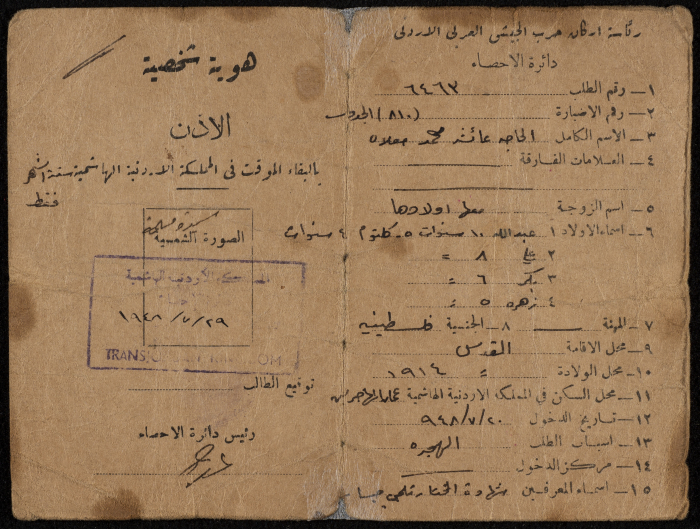 رئاسة اركان حرب الجيش العربي الاردني
دائرة الاحصاء
١ـ رقم الطلب ٦٤٦٣
٢ـ رقم الاضبارة (٨١٠)
٣ـ الاسم الكامل الحاجه عائشه محمد
٤ـ العلامات الفارقة
٥ـ اسم الزوجة معها اولادها
٦ـ اسماء الاولاد ١ عبدالله ١٠ سنوات ٥ـ كلثوم ٤ سنوات
٢ ٨ =
٣ بكر ٦ =
٤ زهره ٥ =
٧ـ المهنة ٨ـ الجنسية فلسطينيه
٩ـ محل الاقامة القدس
١٠ـ محل الولادة = ١٩١٤
١١ـ محل السكن في المملكة الاردنية الهاشمية عمان المهاجرين
١٢ـ تاريخ الدخول ٩٤٨/٧/٢٠
١٣ـ اسباب الطلب الهجره
١٤ـ مركز الدخول
١٥ـ اسماء المعرفين شهادة المختار
هوية شخصية
الاذن
بالبقاء الموقت في المملكة الاردنية الهاشمية ستة اشهر
فقط
سيدة مسلمة
الصورة الشمسية
المملكة الأردنية الهاشمية
١٩٤٨/٧/٢٩
TRANSJORDAN
توقيع الطالب
رئيس دائرة الاحصاء